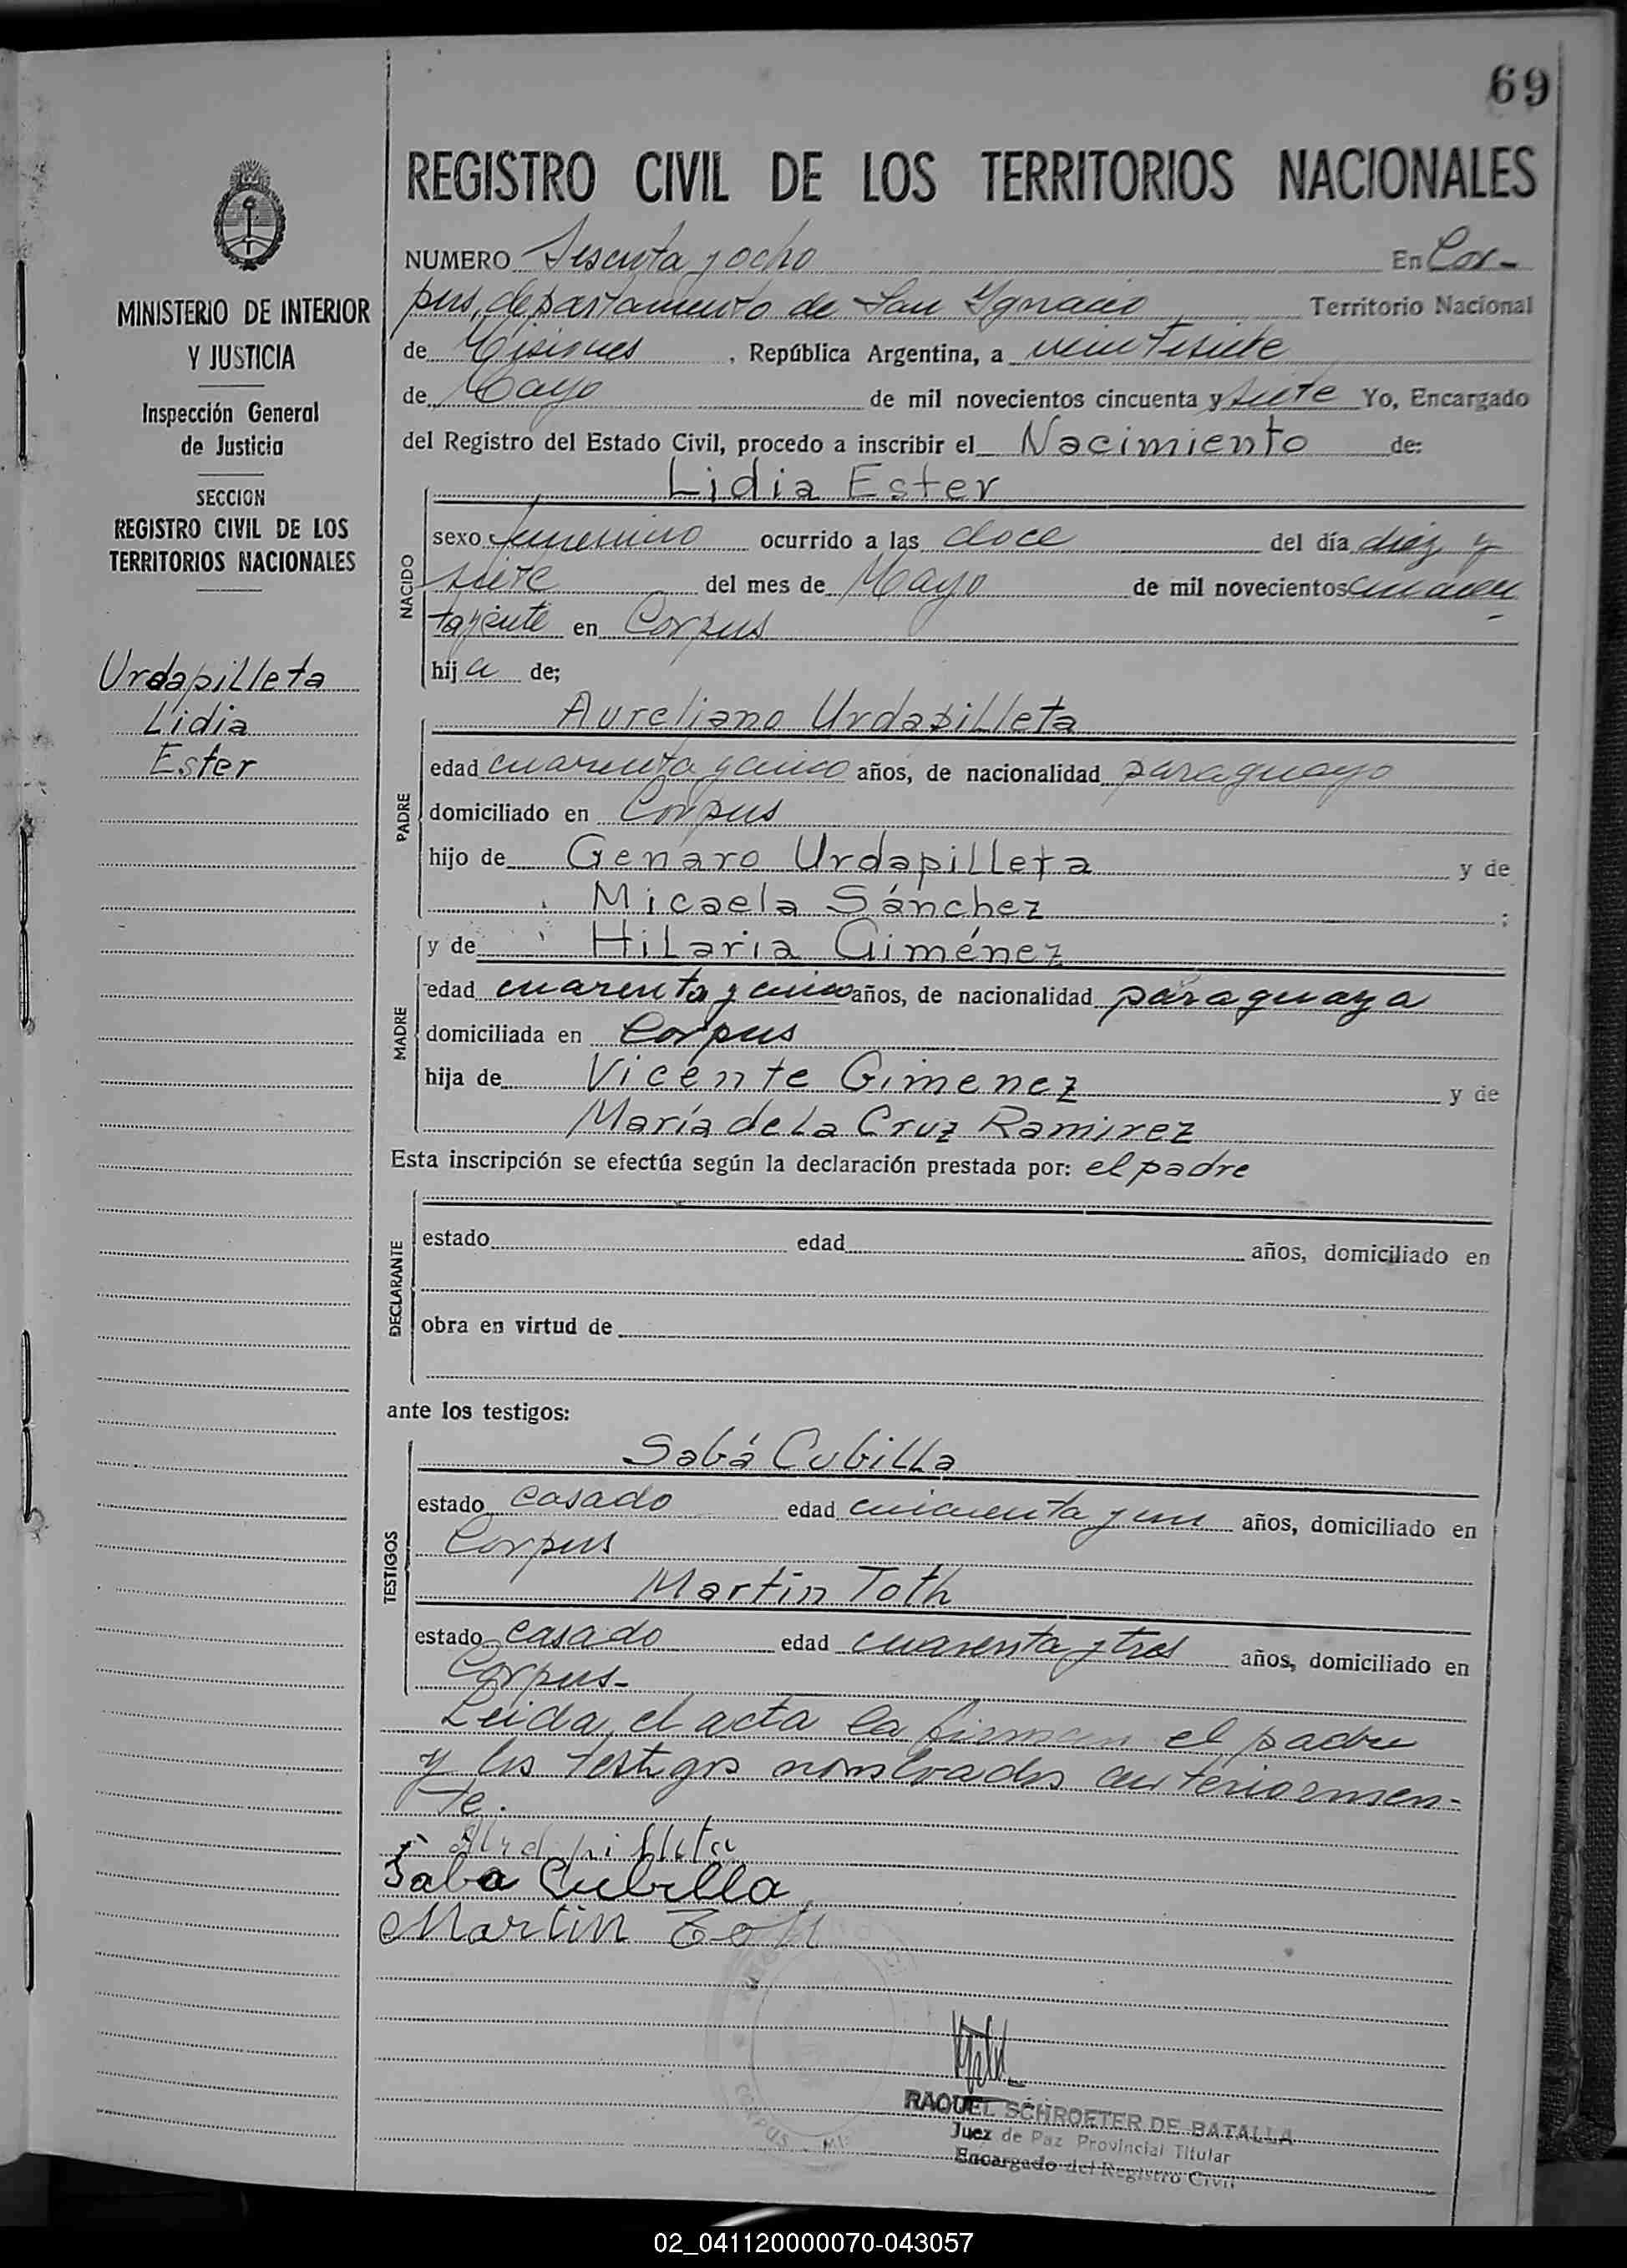 69
REGISTRO CIVIL DE LOS TERRITORIOS NACIONALES
NUMERO Sesenta y ocho En Cor-
pus, departamento de San Ygnacio Territorio Nacional
de Misiones, República Argentina, a veintisiete
de Mayo de mil novecientos cincuenta y siete Yo, Encargado
del Registro del Estado Civil, procedo a inscribir el Nacimiento de:
MINISTERIO DE INTERIOR
Y JUSTICIA
Inspección General
de Justicia
SECCION
REGISTRO CIVIL DE LOS
TERRITORIOS NACIONALES
Urdapilleta
Lidia
Ester
NACIDO
Lidia Ester
sexo femenino ocurrido a las doce del día diez y
siete del mes de Mayo de mil novecientos cincuen
ta y siete en Corpus
hija de;
PADRE
Aureliano Urdapilleta
edad cuarenta y cinco años, de nacionalidad paraguayo
domiciliado en Corpus
hijo de Genaro Urdapilleta y de
Micaela Sánchez ;
MADRE
y de Hilaria Giménez
edad cuarenta y cinco años, de nacionalidad paraguaya
domiciliada en Corpus
hija de Vicente Gimenez y de
María de la Cruz Ramirez
Esta inscripción se efectúa según la declaración prestada por: el padre
DECLARANTE
estado edad años, domiciliado en
obra en virtud de
ante los testigos:
TESTIGOS
Sabá Cubilla
estado casado edad cincuenta y un años, domiciliado en
Corpus
Martin Toth
estado casado edad cuarenta y tres años, domiciliado en
Corpus-
Leida el acta la firman el padre
y los testigos nombrados anteriormen-
te.
Urdapilleta
Saba Cubilla
Martin Toth
CORPUS
RAQUEL SCHROETER DE BATALLA
Juez de Paz Provincial Titular
Encargado del Registro Civil
02_041120000070-043057